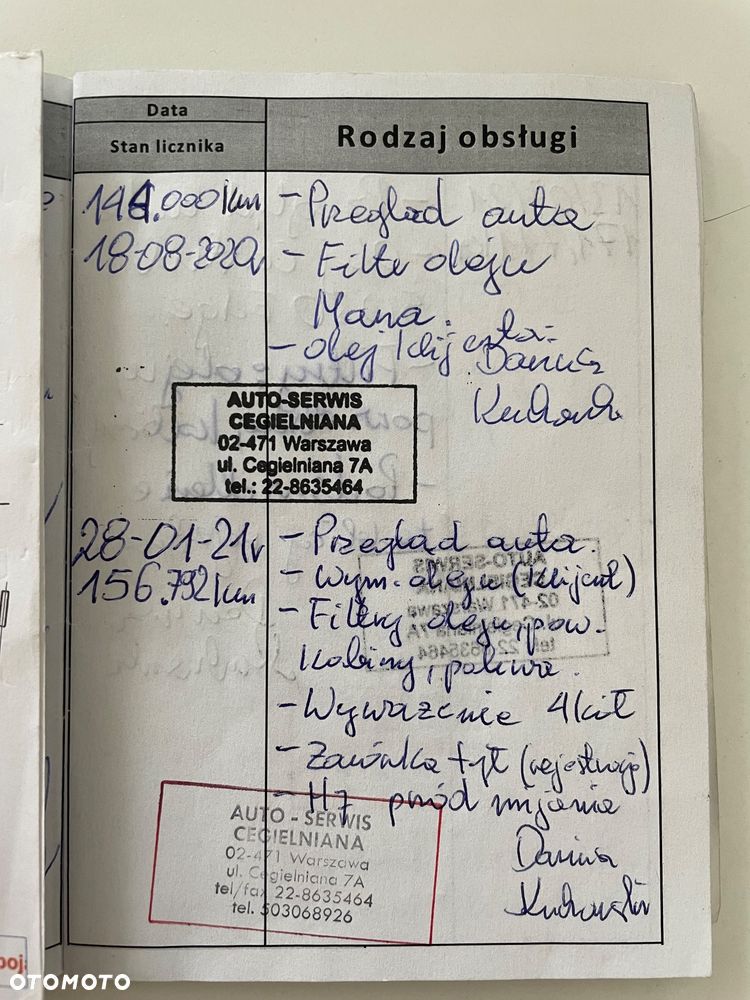 Data
Stan licznika
Rodzaj obsługi
.000 km
- Przegląd auta
18-08-2020r
- Filtr oleju
Mana.
- olej klijenta.
AUTO-SERWIS
CEGIELNIANA
02-471 Warszawa
ul. Cegielniana 7A
tel.: 22-8635464
28-01-21r
- Przegląd auta.
156.792 km
- Wym. oleju (klijent)
- Filtry oleju, pow.
Kabiny, paliwa.
- Wyważenie 4 kół
- Żarówka tył (rejestracja)
- H7 przód mijania
AUTO - SERWIS
CEGIELNIANA
02-471 Warszawa
ul. Cegielniana 7A
tel/fax 22-8635464
tel. 503068926
OTOMOTO